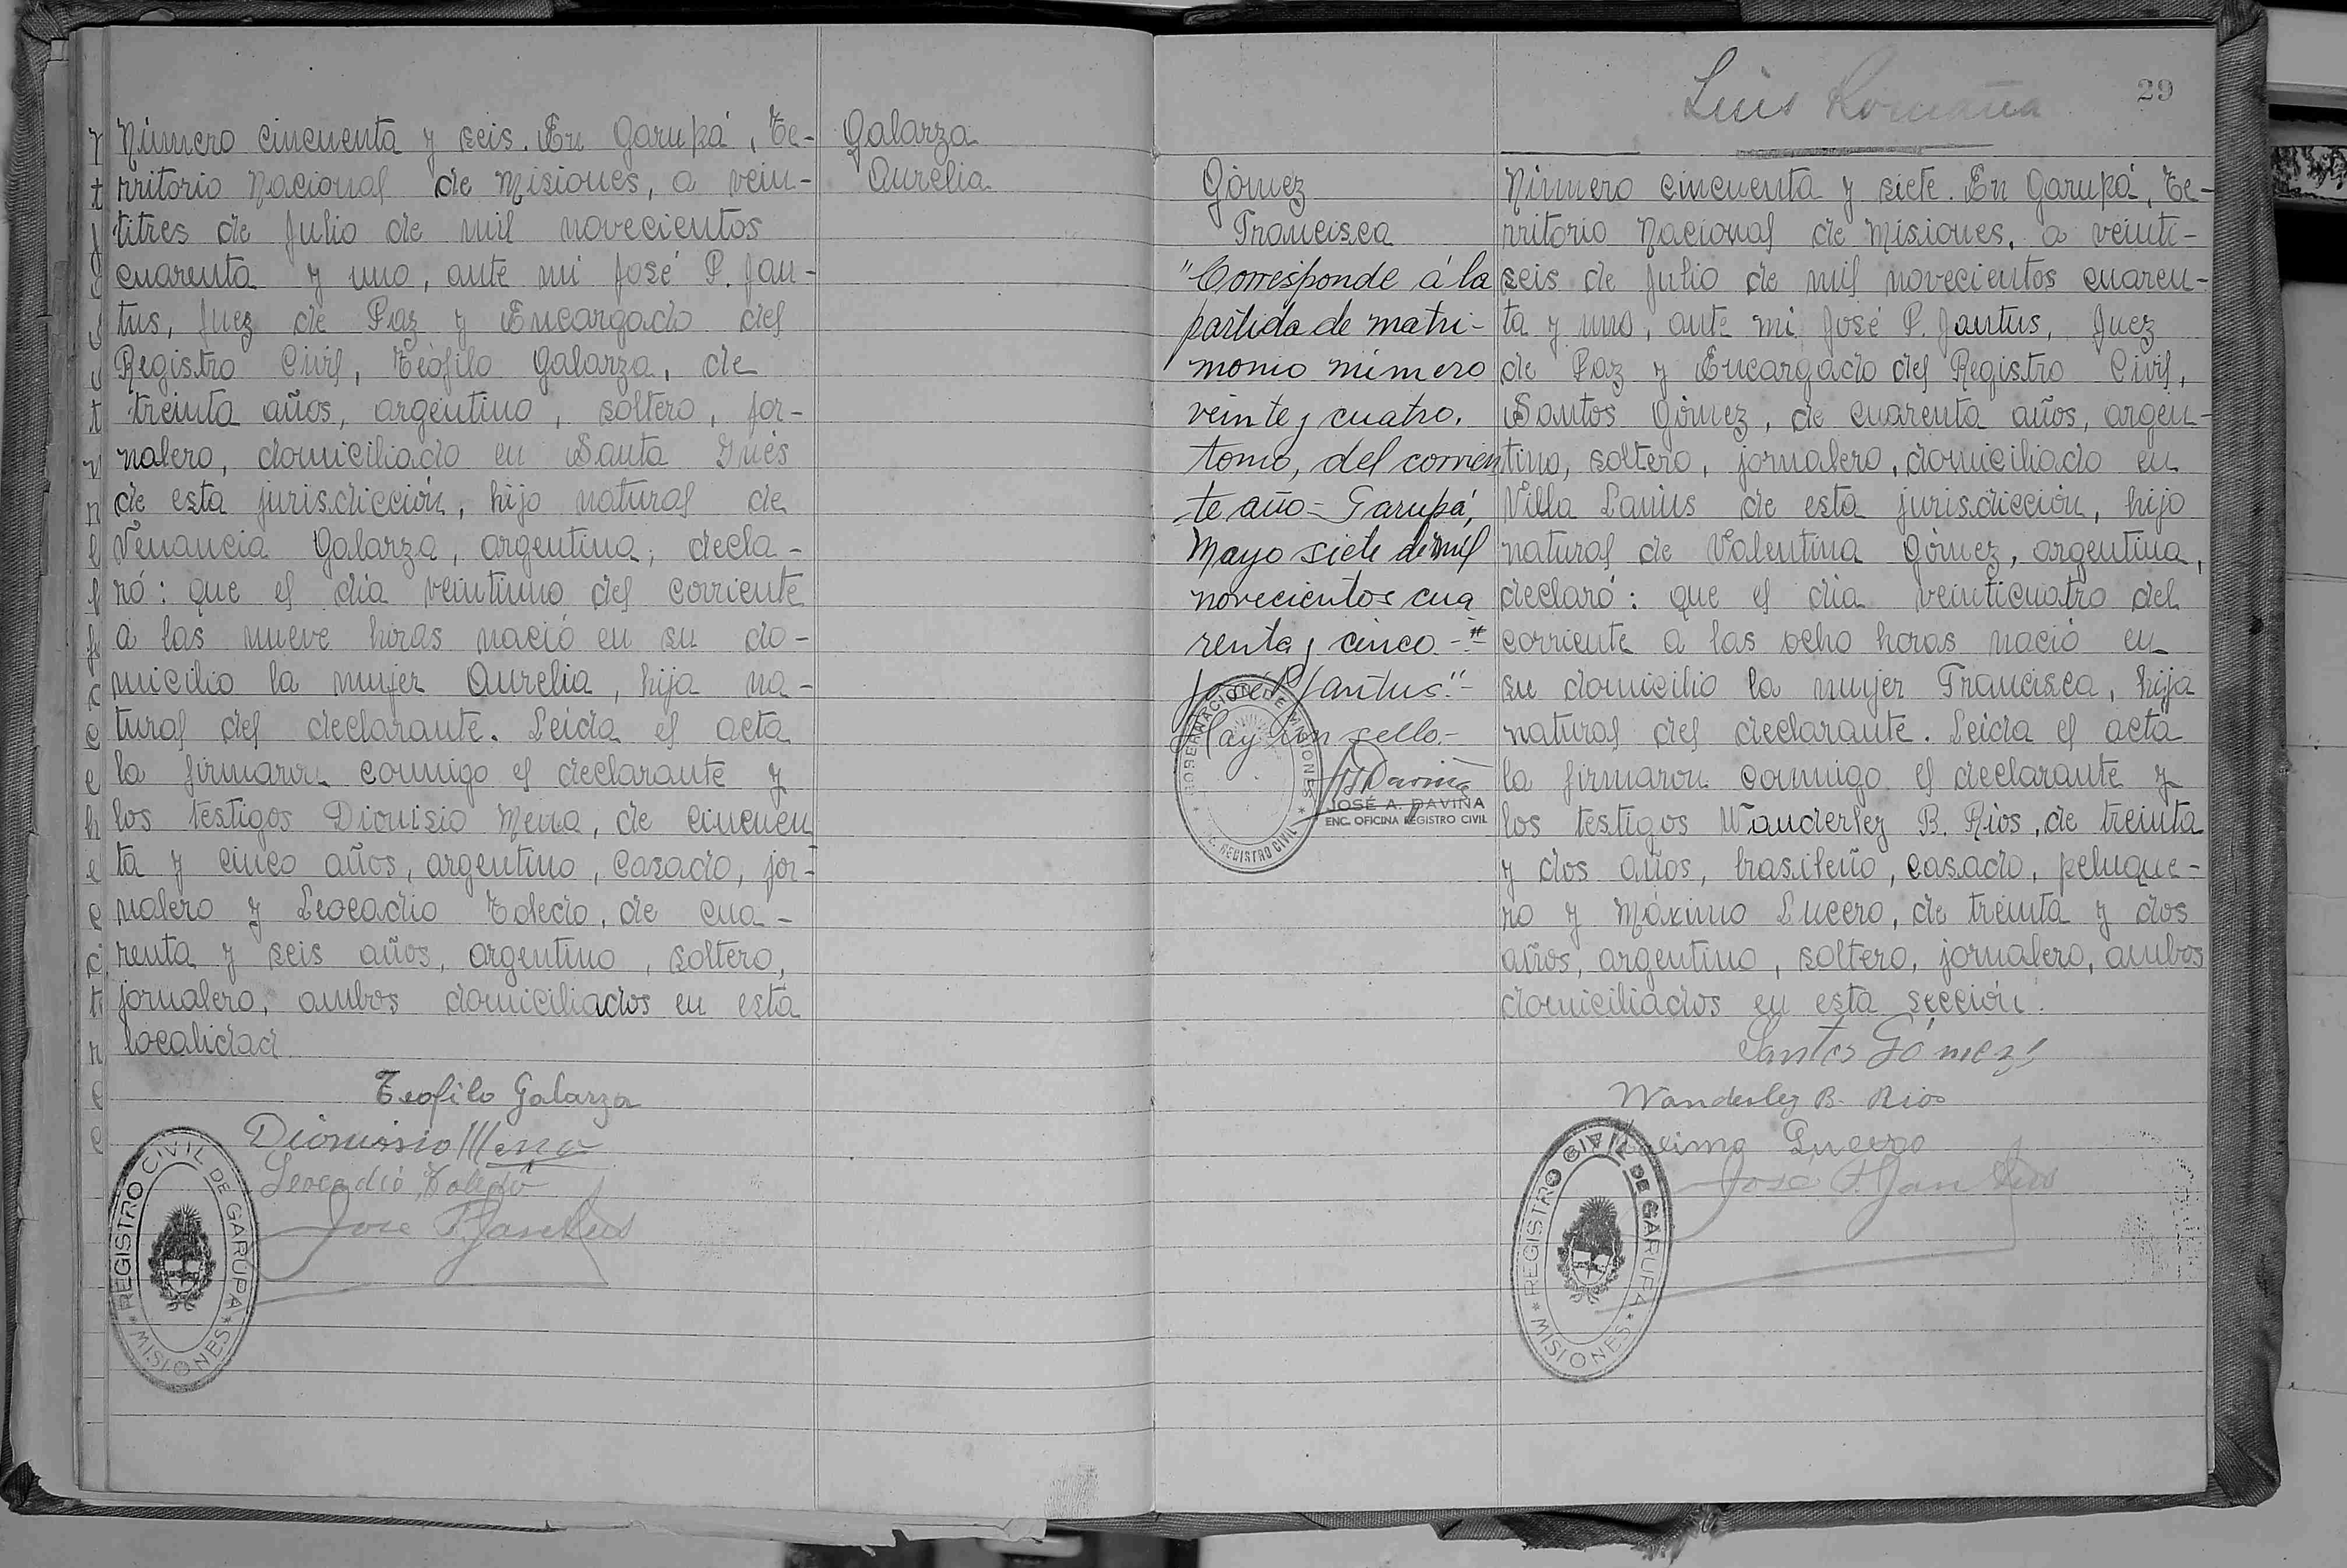 Número cincuenta y seis. En Garupá, Te-
rritorio Nacional de Misiones, a vein-
titres de Julio de mil novecientos
cuarenta y uno, ante mi José P. Jan-
tus, Juez de Paz y Encargado del
Registro Civil, Teófilo Galarza, de
treinta años, argentino, soltero, jor-
nalero, domiciliado en Santa Inés
de esta jurisdicción, hijo natural de
Venancia Galarza, argentina, decla-
ró: que el día veintiuno del corriente
a las nueve horas nació en su do-
micilio la mujer Aurelia, hija na-
tural del declarante. Leida el acta
la firmaron conmigo el declarante y
los testigos Dionisio Mena, de cincuen
ta y cinco años, argentino, casado, jor-
nalero y Leocadio Toledo, de cua-
renta y seis años, argentino, soltero,
jornalero, ambos domiciliados en esta
localidad
Teofilo Galarza
Dionisio Mena
Leocadio Toledo
Jose P. Jantus
REGISTRO CIVIL DE GARUPA
* MISIONES *
Galarza
Aurelia
Gómez
Francisca
"Corresponde á la
partida de matri-
monio número
veinte y cuatro,
tomo, del corrien
te año - Garupá,
Mayo siete de mil
novecientos cua
renta y cinco -
Jose P. Jantus." -
Hay un sello. -
GOBERNACION DE MISIONES
* REGISTRO CIVIL *
JOSÉ A. DAVIÑA
ENC. OFICINA REGISTRO CIVIL
Luis Romaña
29
Número cincuenta y siete. En Garupá, Te-
rritorio Nacional de Misiones, a veinti-
seis de Julio de mil novecientos cuaren-
ta y uno, ante mi José P. Jantus, Juez
de Paz y Encargado del Registro Civil,
Santos Gómez, de cuarenta años, argen-
tino, soltero, jornalero, domiciliado en
Villa Lanús de esta jurisdicción, hijo
natural de Valentina Gómez, argentina,
declaró: que el día veinticuatro del
corriente a las ocho horas nació en
su domicilio la mujer Francisca, hija
natural del declarante. Leida el acta
la firmaron conmigo el declarante y
los testigos Wanderley B. Rios, de treinta
y dos años, brasileño, casado, peluque-
ro y Máximo Lucero, de treinta y dos
años, argentino, soltero, jornalero, ambos
domiciliados en esta sección.
Santos Gómez
Wanderley B. Rios
Maximo Lucero
José P. Jantus
REGISTRO CIVIL DE GARUPA
* MISIONES *